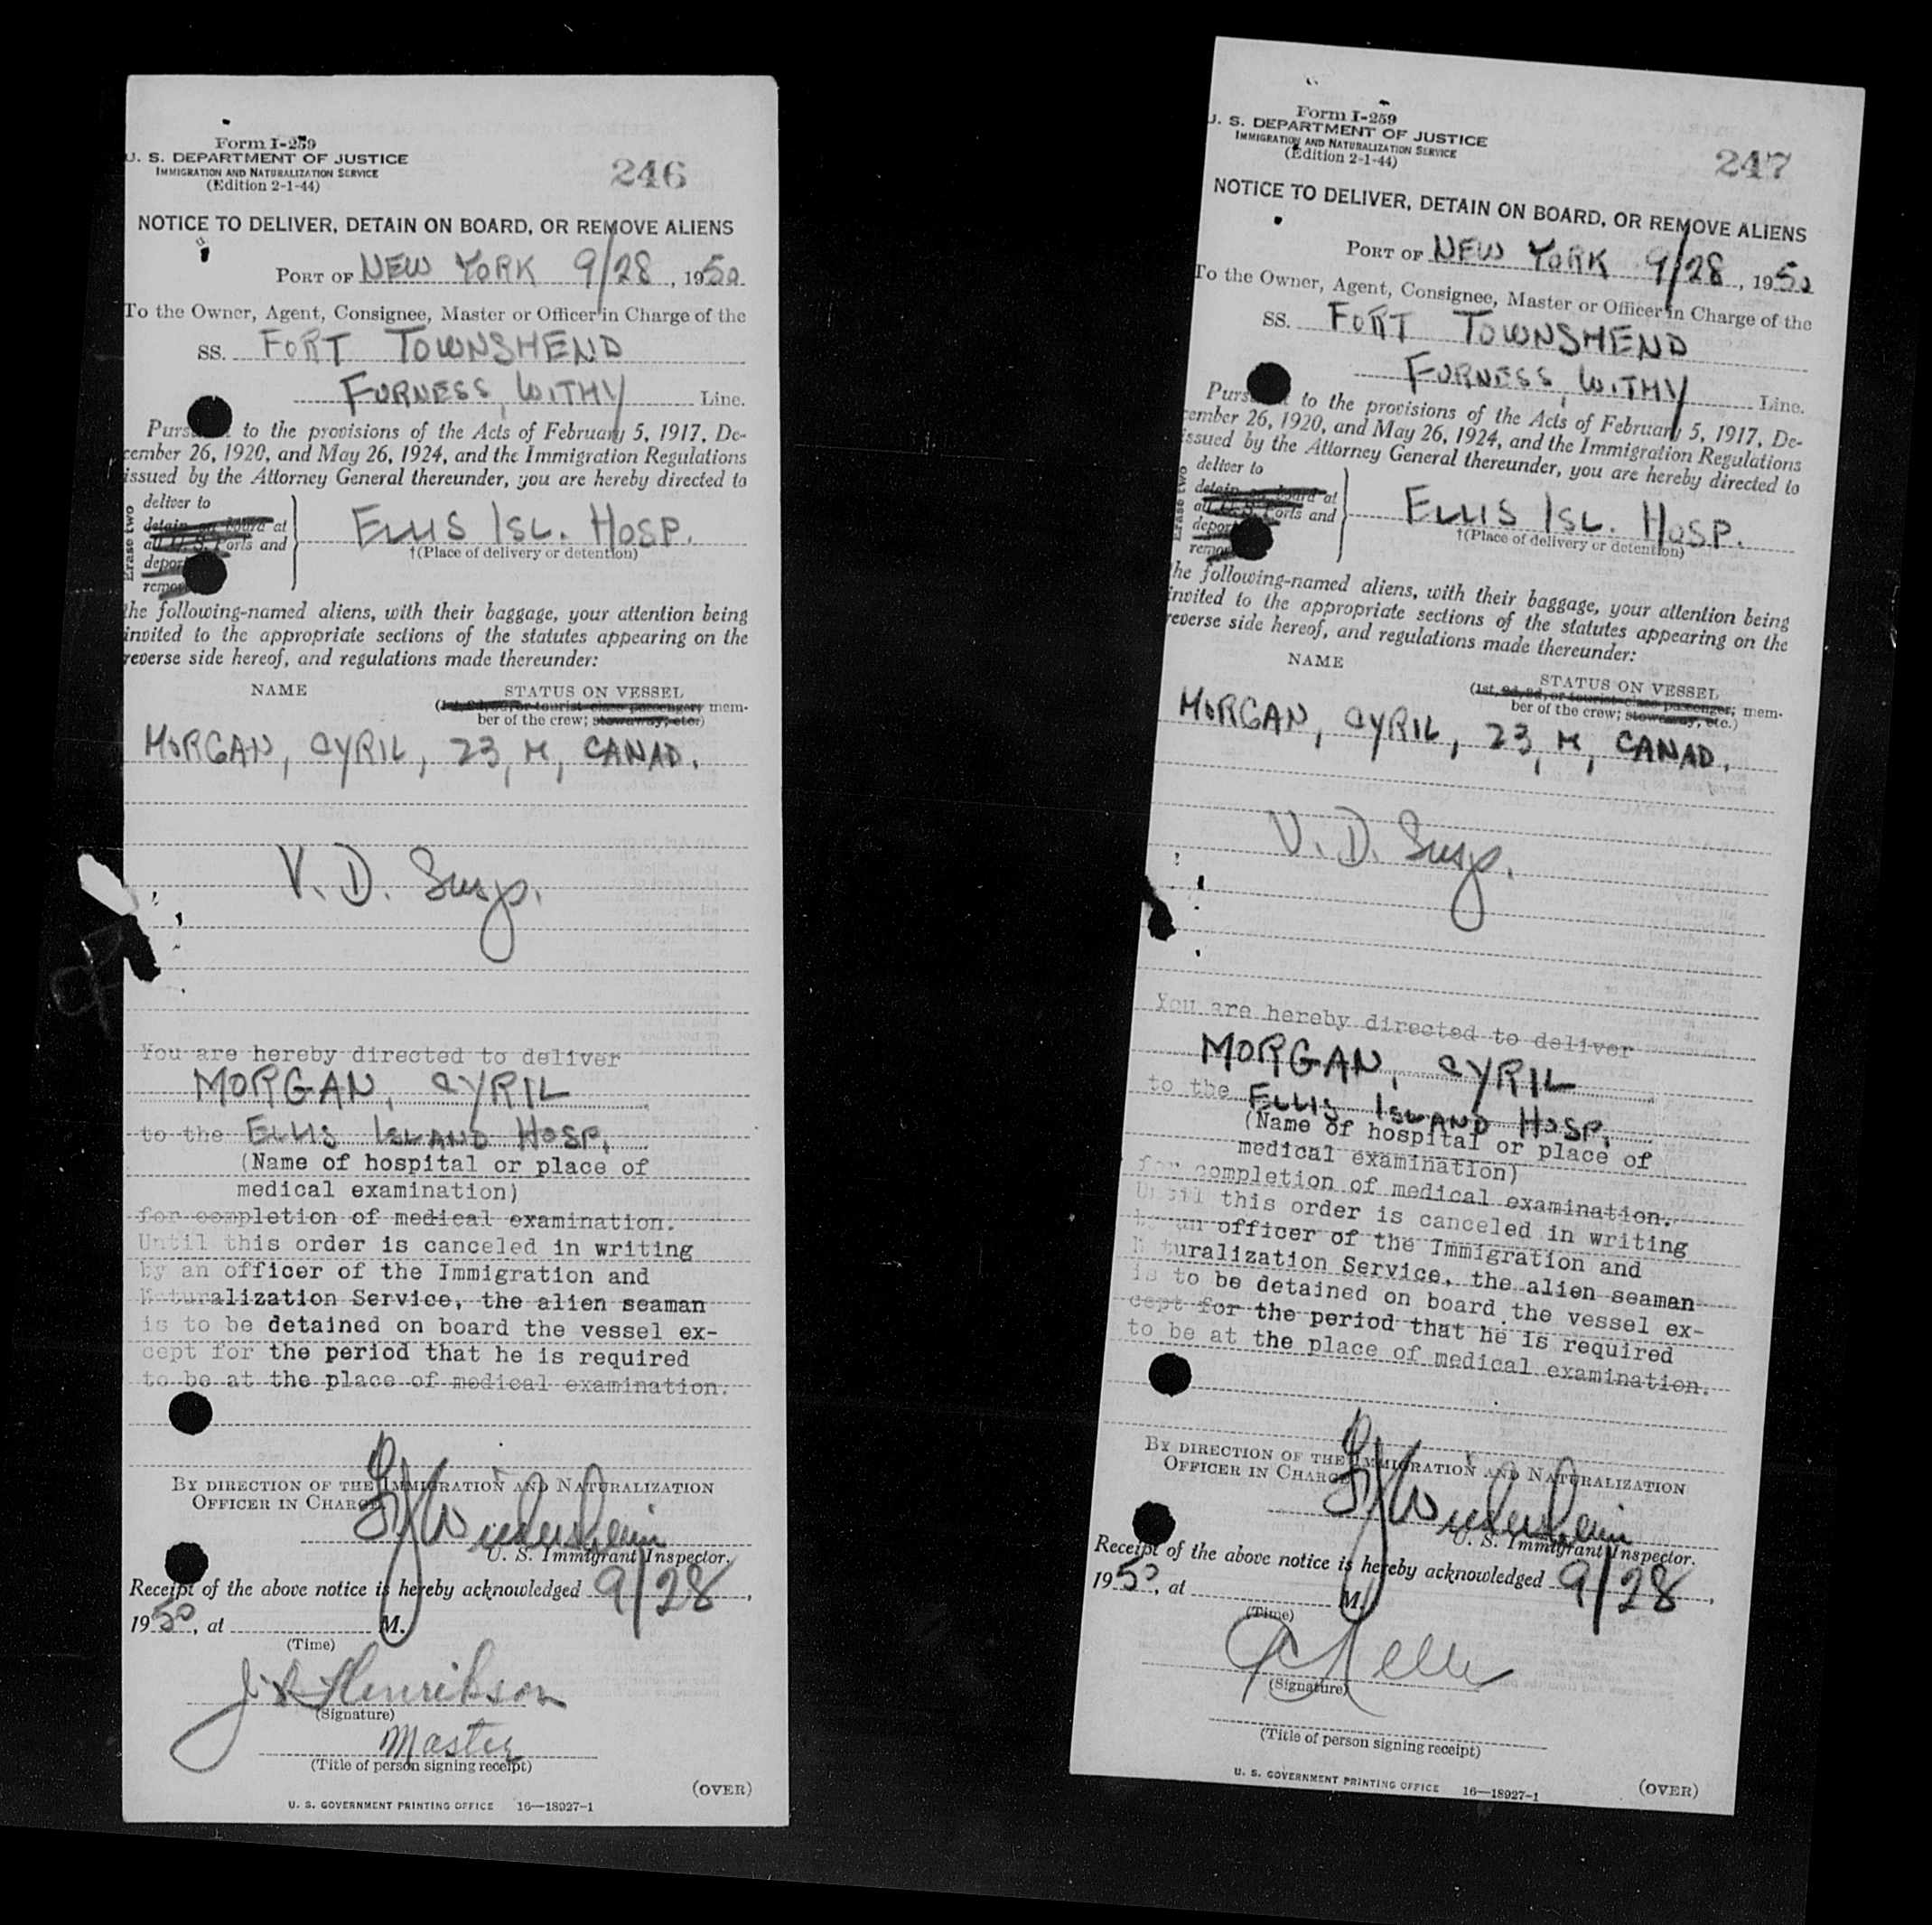 Form I-259
U. S. DEPARTMENT OF JUSTICE
IMMIGRATION AND NATURALIZATION SERVICE
(Edition 2-1-44)
246
NOTICE TO DELIVER, DETAIN ON BOARD, OR REMOVE ALIENS
PORT OF NEW YORK 9/28, 1950
To the Owner, Agent, Consignee, Master or Officer in Charge of the
SS. FORT TOWNSHEND
FURNESS, WITHY Line.
Pursuant to the provisions of the Acts of February 5, 1917, De-
cember 26, 1920, and May 26, 1924, and the Immigration Regulations
issued by the Attorney General thereunder, you are hereby directed to
Erase two
deliver to
detain on board at
all U. S. Ports and
depor
remov
ELLIS ISL. HOSP.
†(Place of delivery or detention)
the following-named aliens, with their baggage, your attention being
invited to the appropriate sections of the statutes appearing on the
reverse side hereof, and regulations made thereunder:
NAME STATUS ON VESSEL
(1st, 2d, 3d, or tourist class passenger; mem-
ber of the crew; stowaway, etc.)
MORGAN, CYRIL, 23, M, CANAD.
V. D. Susp.
You are hereby directed to deliver
MORGAN, CYRIL
to the ELLIS ISLAND HOSP.
(Name of hospital or place of
medical examination)
for completion of medical examination.
Until this order is canceled in writing
by an officer of the Immigration and
Naturalization Service, the alien seaman
is to be detained on board the vessel ex-
cept for the period that he is required
to be at the place of medical examination.
BY DIRECTION OF THE IMMIGRATION AND NATURALIZATION
OFFICER IN CHARGE
U. S. Immigrant Inspector.
Receipt of the above notice is hereby acknowledged 9/28,
1950, at M.
(Time)
Henrikson
(Signature)
Master
(Title of person signing receipt)
(OVER)
U. S. GOVERNMENT PRINTING OFFICE 16—18927-1
Form I-259
U. S. DEPARTMENT OF JUSTICE
IMMIGRATION AND NATURALIZATION SERVICE
(Edition 2-1-44)
247
NOTICE TO DELIVER, DETAIN ON BOARD, OR REMOVE ALIENS
PORT OF NEW YORK 9/28, 1950
To the Owner, Agent, Consignee, Master or Officer in Charge of the
SS. FORT TOWNSHEND
FURNESS, WITHY Line.
Pursuant to the provisions of the Acts of February 5, 1917, De-
cember 26, 1920, and May 26, 1924, and the Immigration Regulations
issued by the Attorney General thereunder, you are hereby directed to
Erase two
deliver to
detain on board at
all U. S. Ports and
depor
remov
ELLIS ISL. HOSP.
†(Place of delivery or detention)
the following-named aliens, with their baggage, your attention being
invited to the appropriate sections of the statutes appearing on the
reverse side hereof, and regulations made thereunder:
NAME STATUS ON VESSEL
(1st, 2d, 3d, or tourist class passenger; mem-
ber of the crew; stowaway, etc.)
MORGAN, CYRIL, 23, M, CANAD.
V. D. Susp.
You are hereby directed to deliver
MORGAN, CYRIL
to the ELLIS ISLAND HOSP.
(Name of hospital or place of
medical examination)
for completion of medical examination.
Until this order is canceled in writing
by an officer of the Immigration and
Naturalization Service, the alien seaman
is to be detained on board the vessel ex-
cept for the period that he is required
to be at the place of medical examination.
BY DIRECTION OF THE IMMIGRATION AND NATURALIZATION
OFFICER IN CHARGE
U. S. Immigrant Inspector.
Receipt of the above notice is hereby acknowledged 9/28,
1950, at M.
(Time)
(Signature)
(Title of person signing receipt)
U. S. GOVERNMENT PRINTING OFFICE 16—18927-1
(OVER)